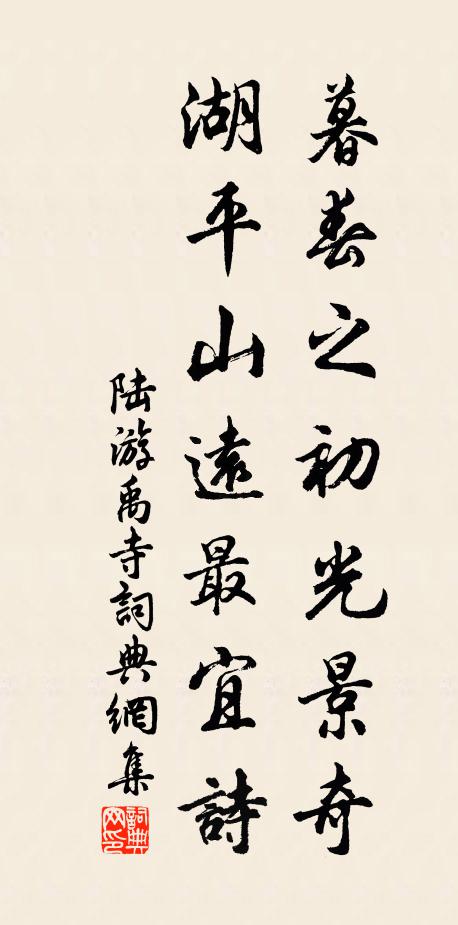 暮春之初光景奇
湖平山遠最宜詩
陆游禹寺詞典網集
詞典网印